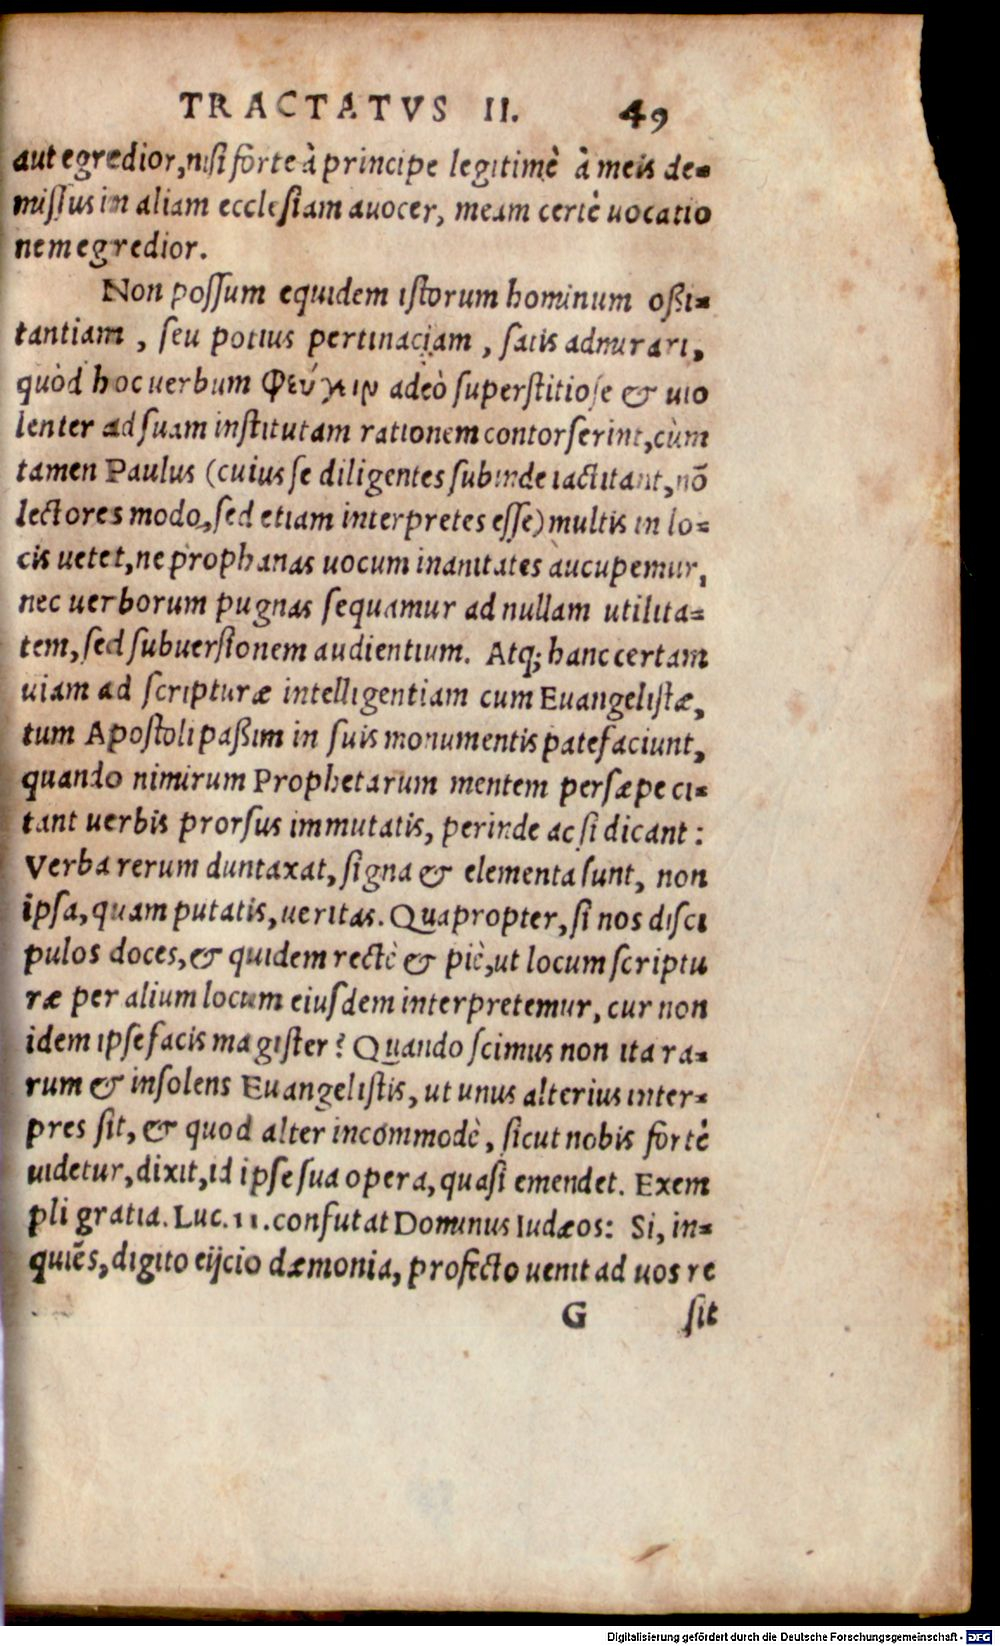 TRACTATVS II. 49
aut egredior, nisi forte à principe legitimè à meis de-
missus in aliam ecclesiam auocer, meam certè uocatio
nem egredior.
Non possum equidem istorum hominum oßi-
tantiam, seu potius pertinaciam, satis admirari,
quòd hoc uerbum Φεύγειν adeò superstitiose & uio
lenter ad suam institutam rationem contorserint, cùm
tamen Paulus (cuius se diligentes subinde iactitant, nõ
lectores modo, sed etiam interpretes esse) multis in lo-
cis uetet, ne prophanas uocum inanitates aucupemur,
nec uerborum pugnas sequamur ad nullam utilita-
tem, sed subuersionem audientium. Atq; hanc certam
uiam ad scripturæ intelligentiam cum Euangelistæ,
tum Apostoli paßim in suis monumentis patefaciunt,
quando nimirum Prophetarum mentem persæpe ci-
tant uerbis prorsus immutatis, perinde ac si dicant:
Verba rerum duntaxat, signa & elementa sunt, non
ipsa, quam putatis, ueritas. Quapropter, si nos disci
pulos doces, & quidem rectè & piè, ut locum scriptu
ræ per alium locum eiusdem interpretemur, cur non
idem ipse facis magister? Quando scimus non ita ra-
rum & insolens Euangelistis, ut unus alterius inter-
pres sit, & quod alter incommodè, sicut nobis fortè
uidetur, dixit, id ipse sua opera, quasi emendet. Exem
pli gratia. Luc. 11. confutat Dominus Iudæos: Si, in-
quiẽs, digito eijcio dæmonia, profecto uenit ad uos re
G sit
Digitalisierung gefördert durch die Deutsche Forschungsgemeinschaft - DFG